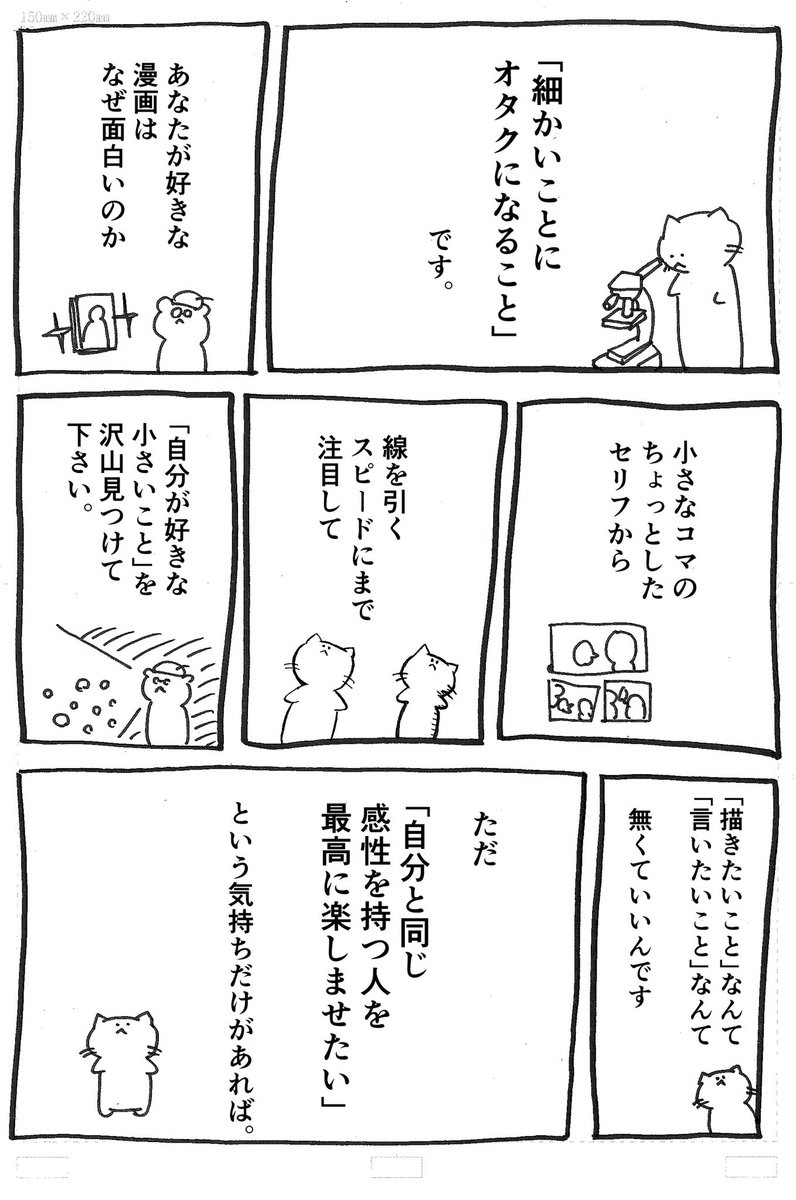 150mm×220mm
「細かいことに
オタクになること」
です。
あなたが好きな
漫画は
なぜ面白いのか
小さなコマの
ちょっとした
セリフから
線を引く
スピードにまで
注目して
「自分が好きな
小さいこと」を
沢山見つけて
下さい。
「描きたいこと」なんて
「言いたいこと」なんて
無くていいんです
ただ
「自分と同じ
感性を持つ人を
最高に楽しませたい」
という気持ちだけがあれば。